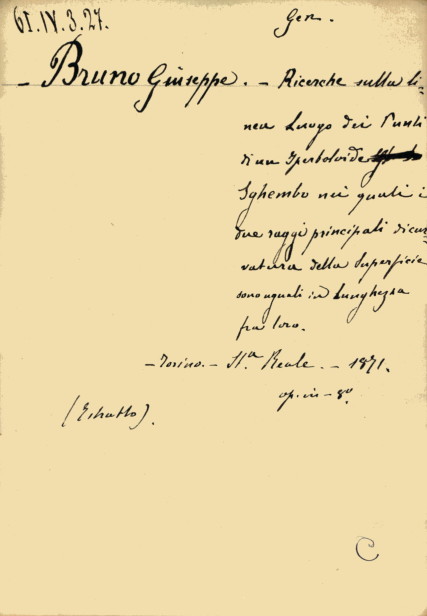 61.IV.3.27.
Gen.
- Bruno Giuseppe. - Ricerche sulla li-
nea Luogo dei Punti
di un Iperboloide
Sghembo nei quali i
due raggi principali di cur-
vatura della Superficie
sono uguali in Lunghezza
fra loro.
- Torino. - St.a Reale. - 1871.
op. in - 8°.
(Estratto).
C